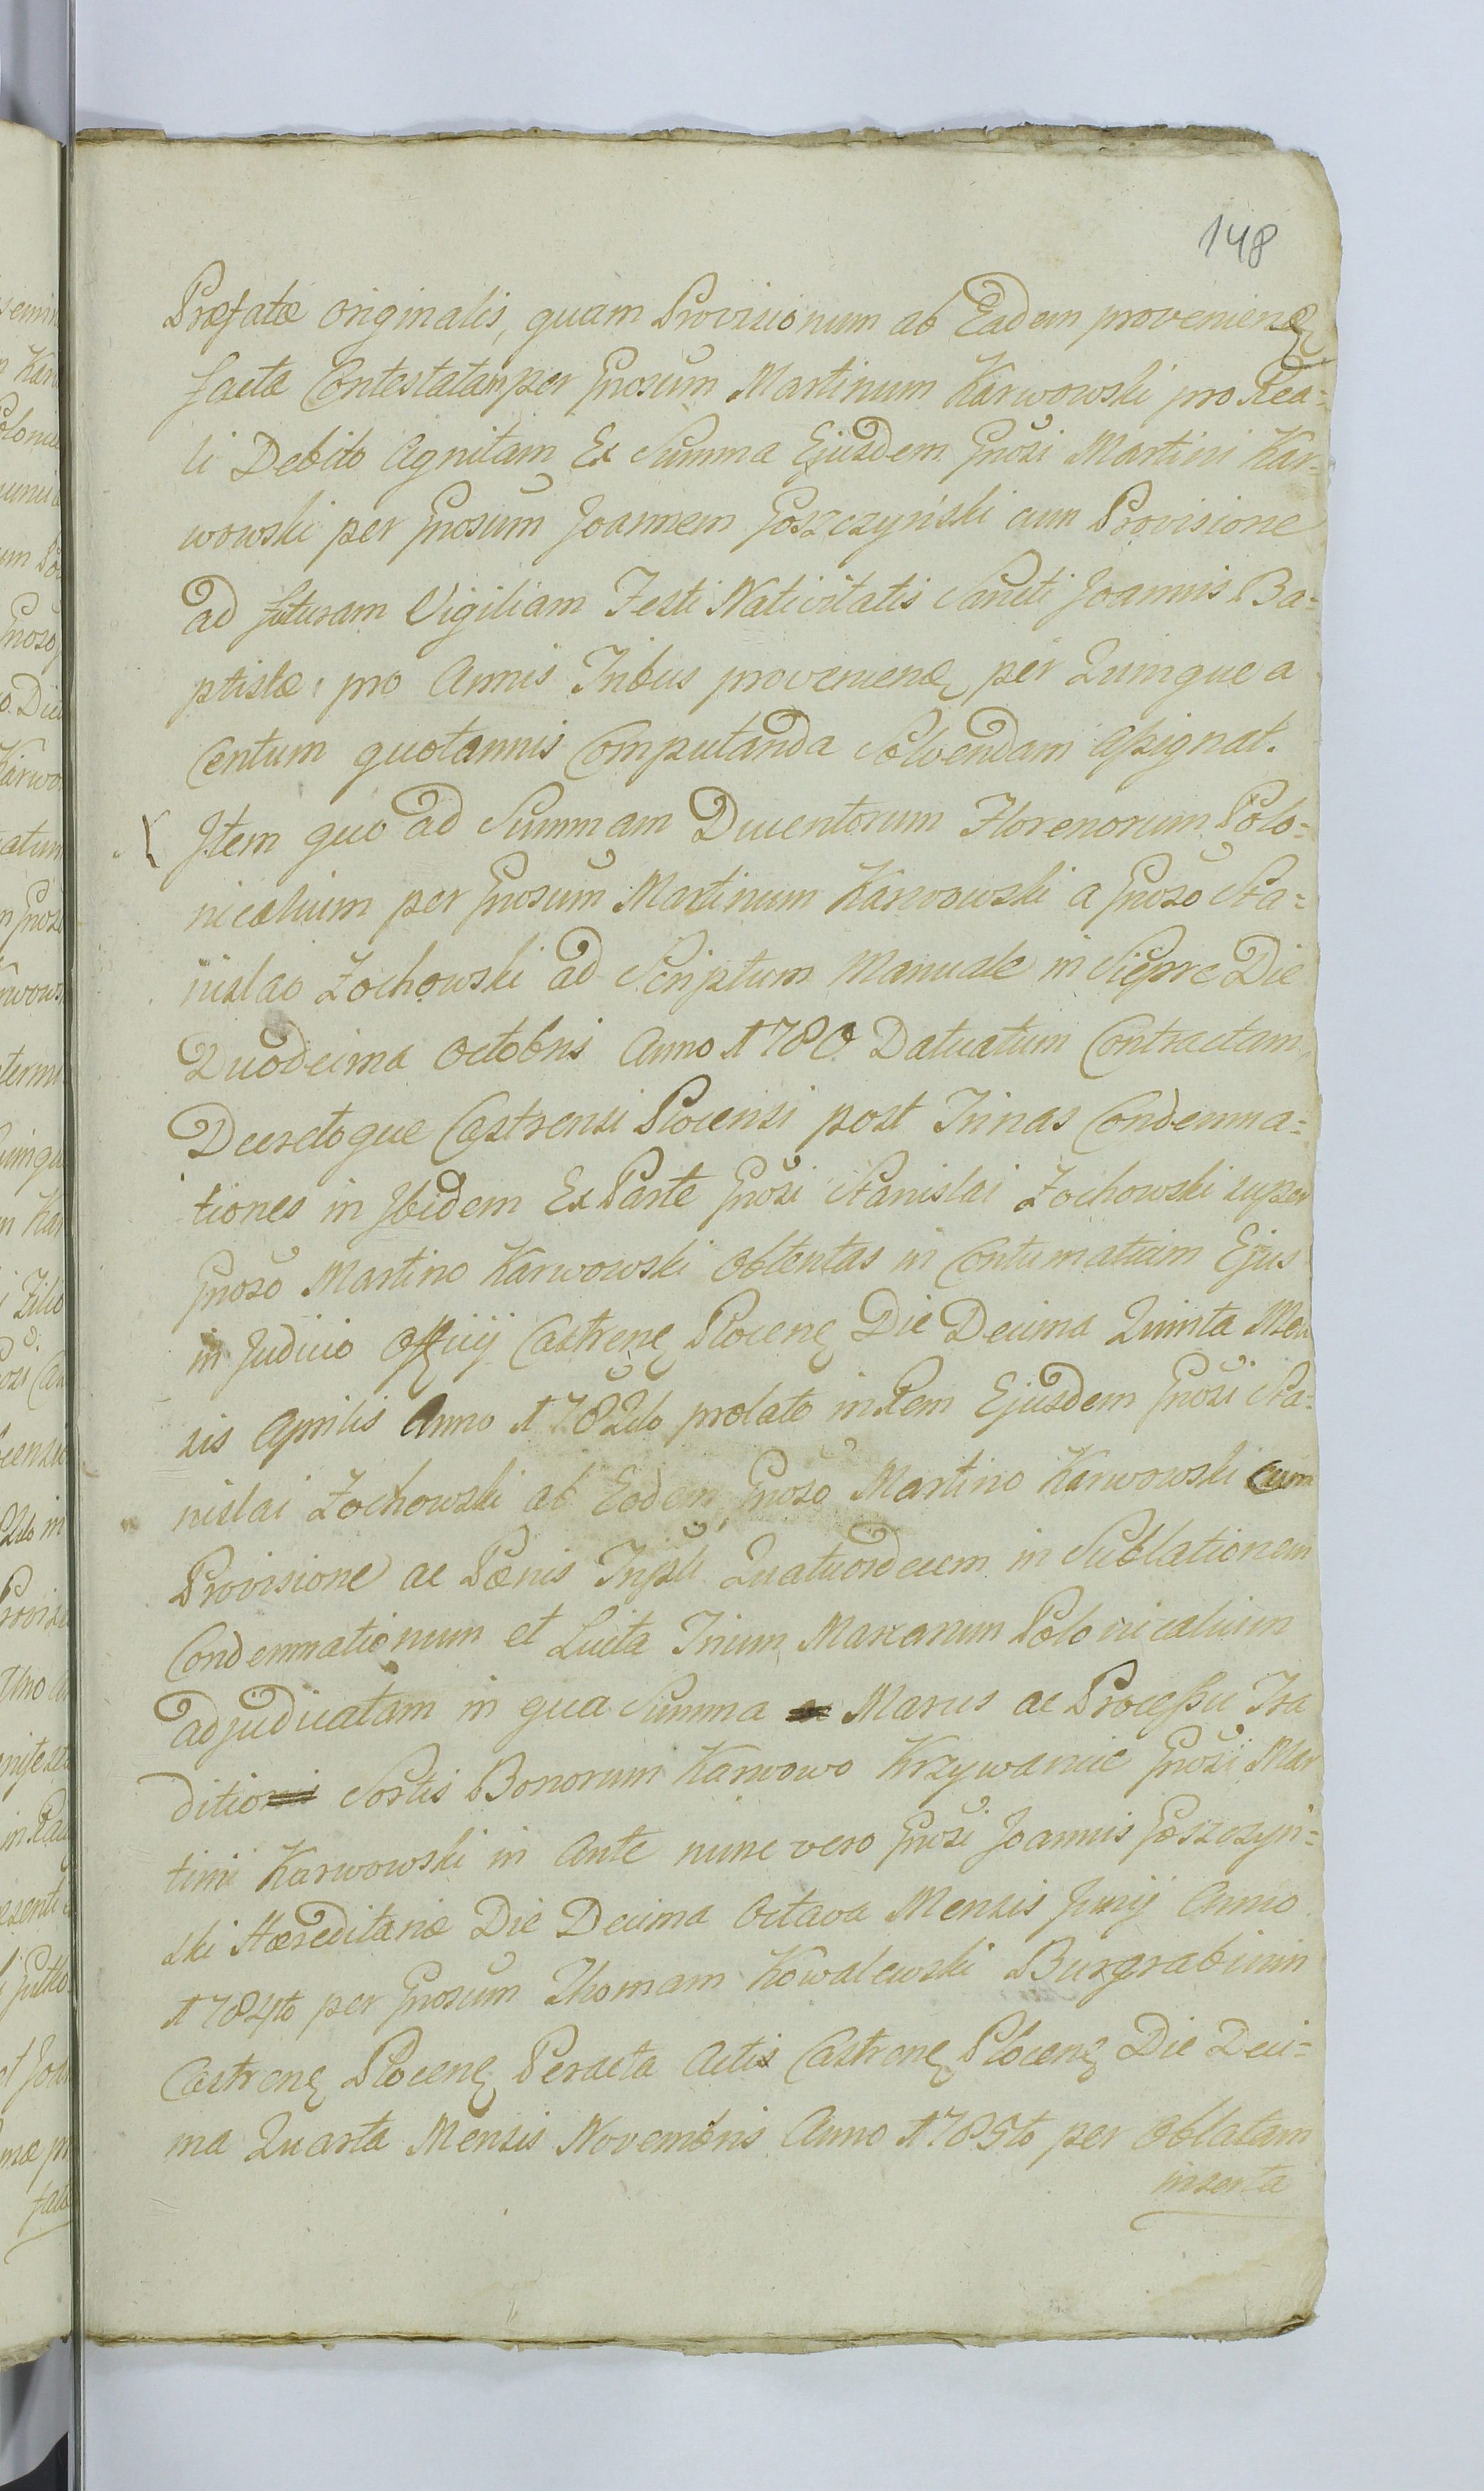 148
Præfatæ originalis, quam Provisionum ab Eadem provenienę
facta Contestatam per Gnosum Martinum Karwowski pro Rea=
li Debito agnitam Ex Summa Ejusdem Gnosi Martini Kar=
wowski per Gnosum Joannem Goszczyński cum Provisione
ad futuram Vigiliam Festi Nativitatis Sancti Joannis Ba=
ptistæ, pro Annis Tribus provenienę per Quinque a
Centum quotannis Computanda Solvendam assignat.
Item quo ad Summam Ducentorum Florenorum Polo=
nicalium per Gnosum Martinum Karwowski a Gnoso Sta=
nislao Zochowski ad Scriptum Manuale in Siepre Die
Duodecima Octobris Anno 1780 Datuatum Contractam,
Decretoque Castrensi Plocensi post Trinas Condemna=
tiones in Ibidem Ex Parte Gnosi Stanislai Zochowski super
Gnoso Martino Karwowski obtentas in Contumatiam Ejus
in Judicio Officij Castrenę Plocenę Die Decima Quinta Men
sis Aprilis Anno 1782do prolato in Rem Ejusdem Gnosi Sta=
nislai Zochowski ab Eodem Gnoso Martino Karwowski cum
Provisione ac Pænis Tripli Quatuordecem in Sublationem
Condemnationum et Luita Trium Marcarum Polonicalium
adjudicatam in qua Summa Marcis ac Processu Tra
ditio Sortis Bonorum Karwowo Krzywanice Gnosi Mar
tini Karwowski in Ante nunc vero Gnosi Joannis Goszczyń=
ski Hæreditariæ Die Decima Octava Mensis Junij Anno
1784to per Gnosum Thomam Kowalewski Burgrabium
Castrenę Plocenę Peracta Actis Castrenę Plocenę Die Deci=
ma Quarta Mensis Novembris Anno 1785to per Oblatam
inserta